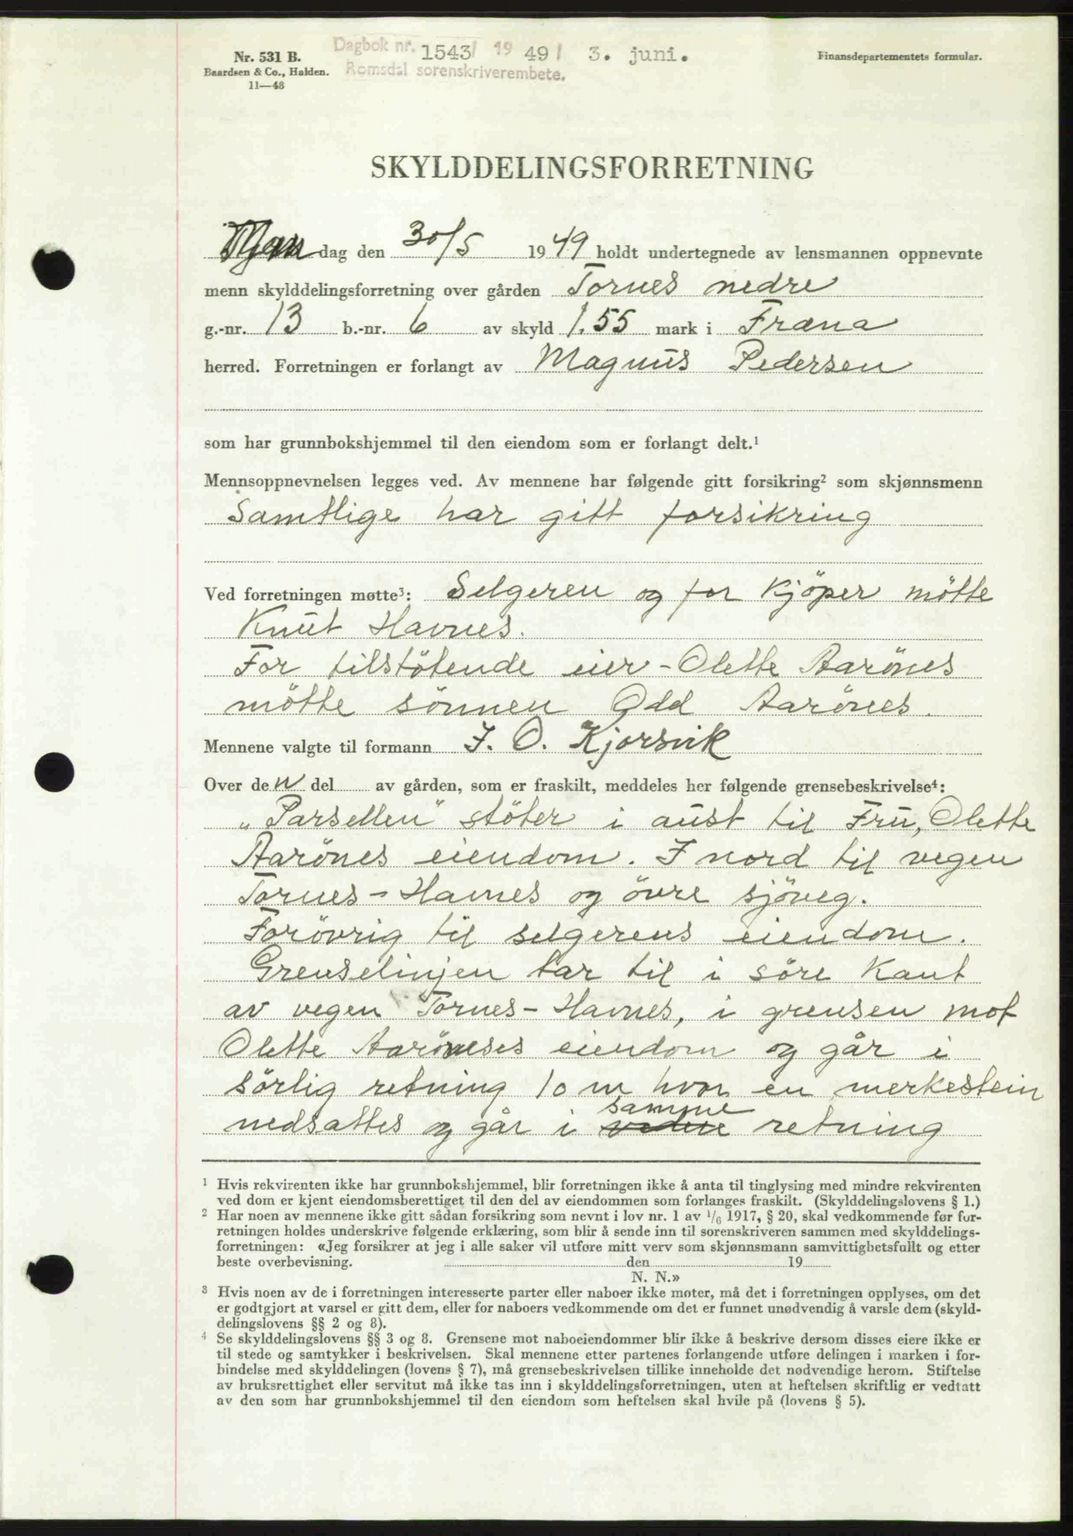 Nr. 531 B.
Baardsen & Co., Halden.
11—48
Dagbok nr. 1543/ 19 49/ 3. juni.
Romsdal sorenskriverembete.
Finansdepartementets formular.
SKYLDDELINGSFORRETNING
Man dag den 30/5 1949 holdt undertegnede av lensmannen oppnevnte
menn skylddelingsforretning over gården Tornes nedre
g.-nr. 13 b.-nr. 6 av skyld 1.55 mark i Fræna
herred. Forretningen er forlangt av Magnus Pedersen
som har grunnbokshjemmel til den eiendom som er forlangt delt.¹
Mennsoppnevnelsen legges ved. Av mennene har følgende gitt forsikring² som skjønnsmenn
Samtlige har gitt forsikring
Ved forretningen møtte³: Selgeren og for kjöper mötte
Knut Havnes.
For tilstötende eier - Olette Aarönes
mötte sönnen Odd Aarönes.
Mennene valgte til formann J. O. Kjorsvik
Over den del av gården, som er fraskilt, meddeles her følgende grensebeskrivelse⁴:
„Parsellen" stöter i aust til Fru, Olette
Aarönes eiendom. I nord til vegen
Tornes - Havnes og övre sjöveg.
Forövrig til selgerens eiendom.
Grenselinjen tar til i söre kant
av vegen Tornes - Havnes, i grensen mot
Olette Aaröneses eiendom og går i
sörlig retning 10 m hvor en merkestein
nedsattes og går i samme retning
¹ Hvis rekvirenten ikke har grunnbokshjemmel, blir forretningen ikke å anta til tinglysing med mindre rekvirenten
ved dom er kjent eiendomsberettiget til den del av eiendommen som forlanges fraskilt. (Skylddelingslovens § 1.)
² Har noen av mennene ikke gitt sådan forsikring som nevnt i lov nr. 1 av 1/6 1917, § 20, skal vedkommende før for-
retningen holdes underskrive følgende erklæring, som blir å sende inn til sorenskriveren sammen med skylddelings-
forretningen: «Jeg forsikrer at jeg i alle saker vil utføre mitt verv som skjønnsmann samvittighetsfullt og etter
beste overbevisning. den 19
N. N.»
³ Hvis noen av de i forretningen interesserte parter eller naboer ikke møter, må det i forretningen opplyses, om det
er godtgjort at varsel er gitt dem, eller for naboers vedkommende om det er funnet unødvendig å varsle dem (skyld-
delingslovens §§ 2 og 8).
⁴ Se skylddelingslovens §§ 3 og 8. Grensene mot naboeiendommer blir ikke å beskrive dersom disses eiere ikke er
til stede og samtykker i beskrivelsen. Skal mennene etter partenes forlangende utføre delingen i marken i for-
bindelse med skylddelingen (lovens § 7), må grensebeskrivelsen tillike inneholde det nødvendige herom. Stiftelse
av bruksrettighet eller servitut må ikke tas inn i skylddelingsforretningen, uten at heftelsen skriftlig er vedtatt
av den som har grunnbokshjemmel til den eiendom som heftelsen skal hvile på (lovens § 5).